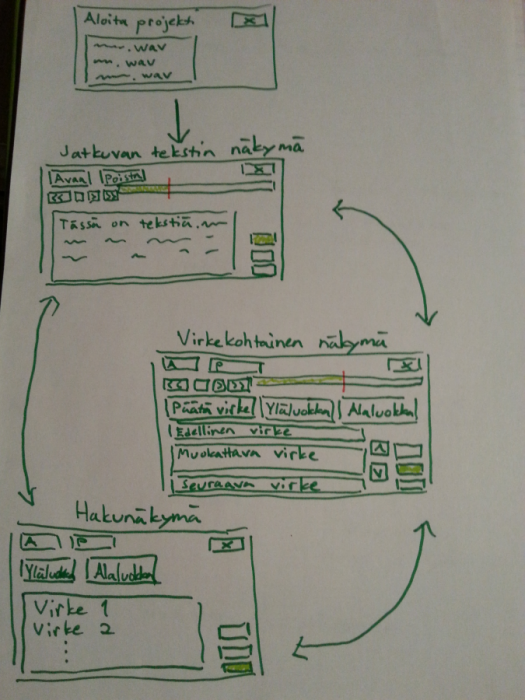 Aloita projekti X
.wav
.wav
.wav
Jatkuvan tekstin näkymä
Avaa Poista X
<< > >>
Tässä on tekstiä.
Virkekohtainen näkymä
A P X
<< > >>
Päätä virke Yläluokka Alaluokka
Edellinen virke
Muokattava virke
Seuraava virke
Λ
V
Hakunäkymä
A P X
Yläluokka Alaluokka
Virke 1
Virke 2